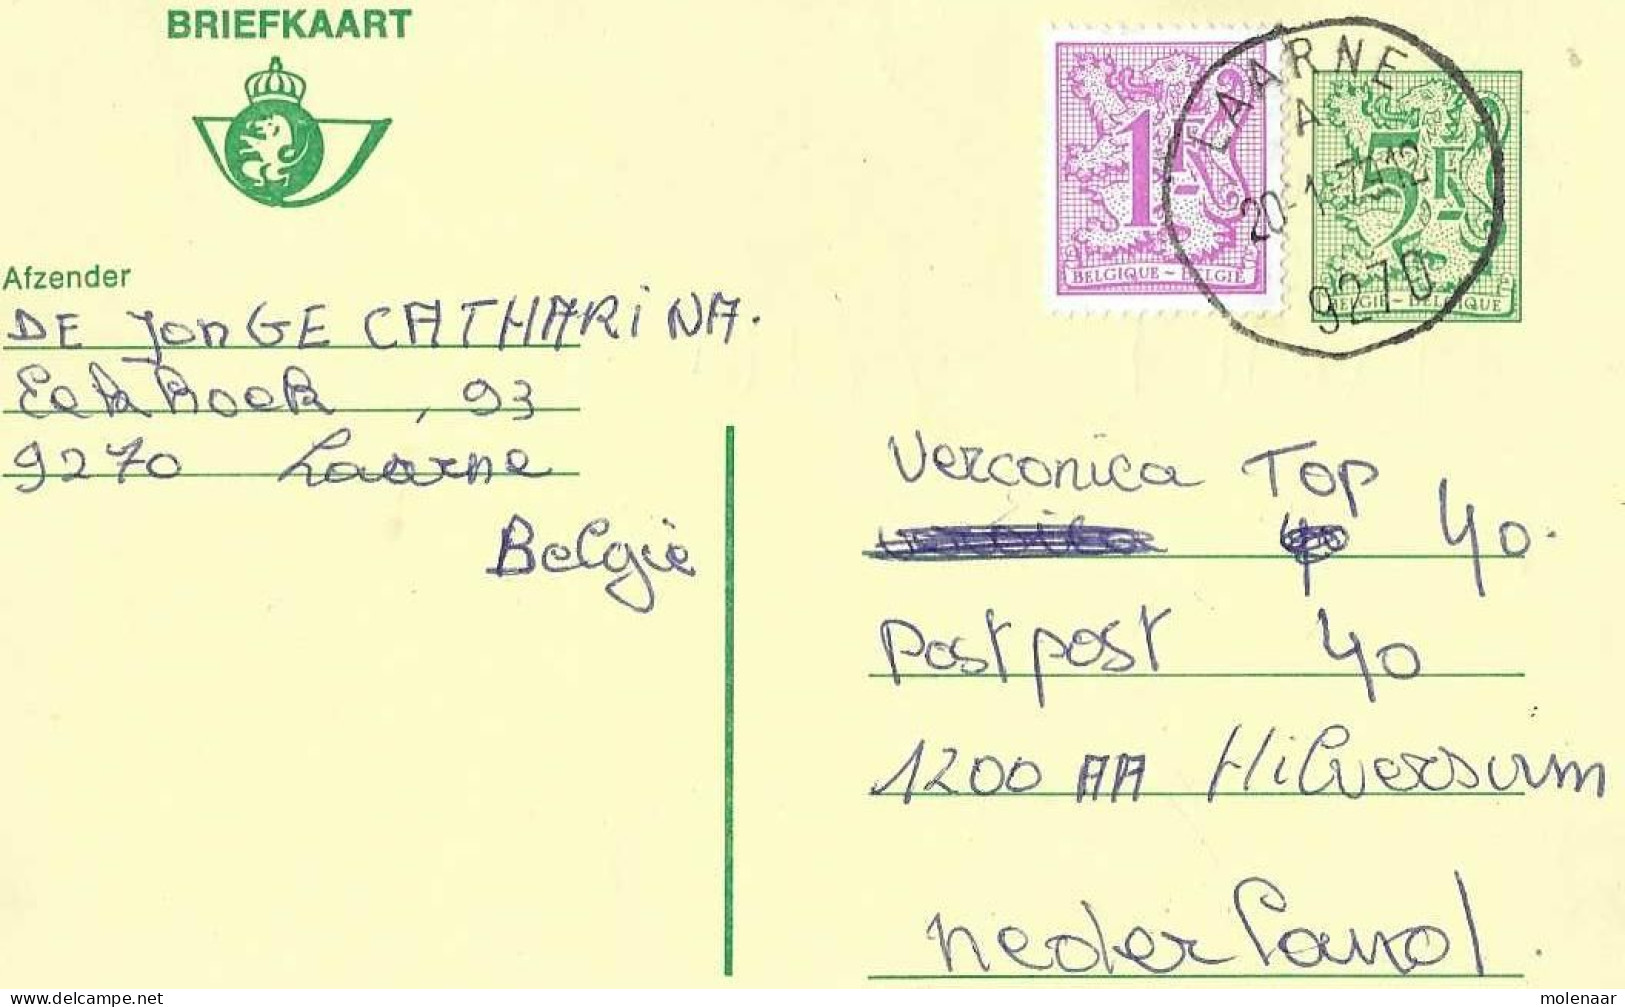 BRIEFKAART
1F
BELGIQUE ~ BELGIË
5F
BELGIË - BELGIQUE
LAARNE
A
20-1-79 12
9270
Afzender
DE JonGE CATHARiNA.
Eekhoek, 93
9270 Laarne
België
Verconica Top 40.
Postpost 40
1200 AA Hilversum
nederland.
molenaar